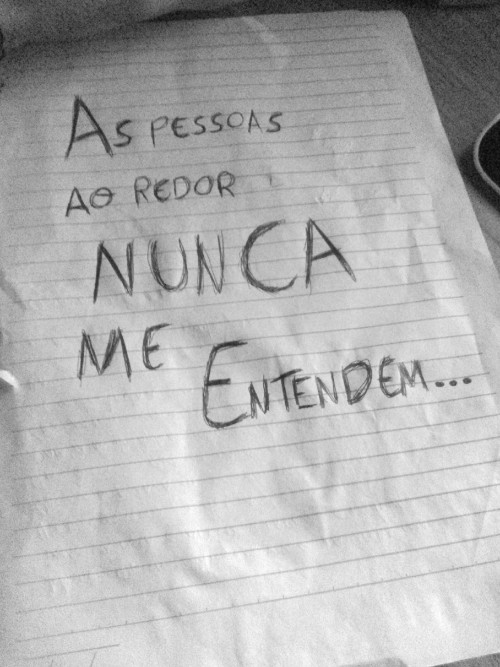 As PESSOAS
AO REDOR
NUNCA
ME
ENTENDEM...